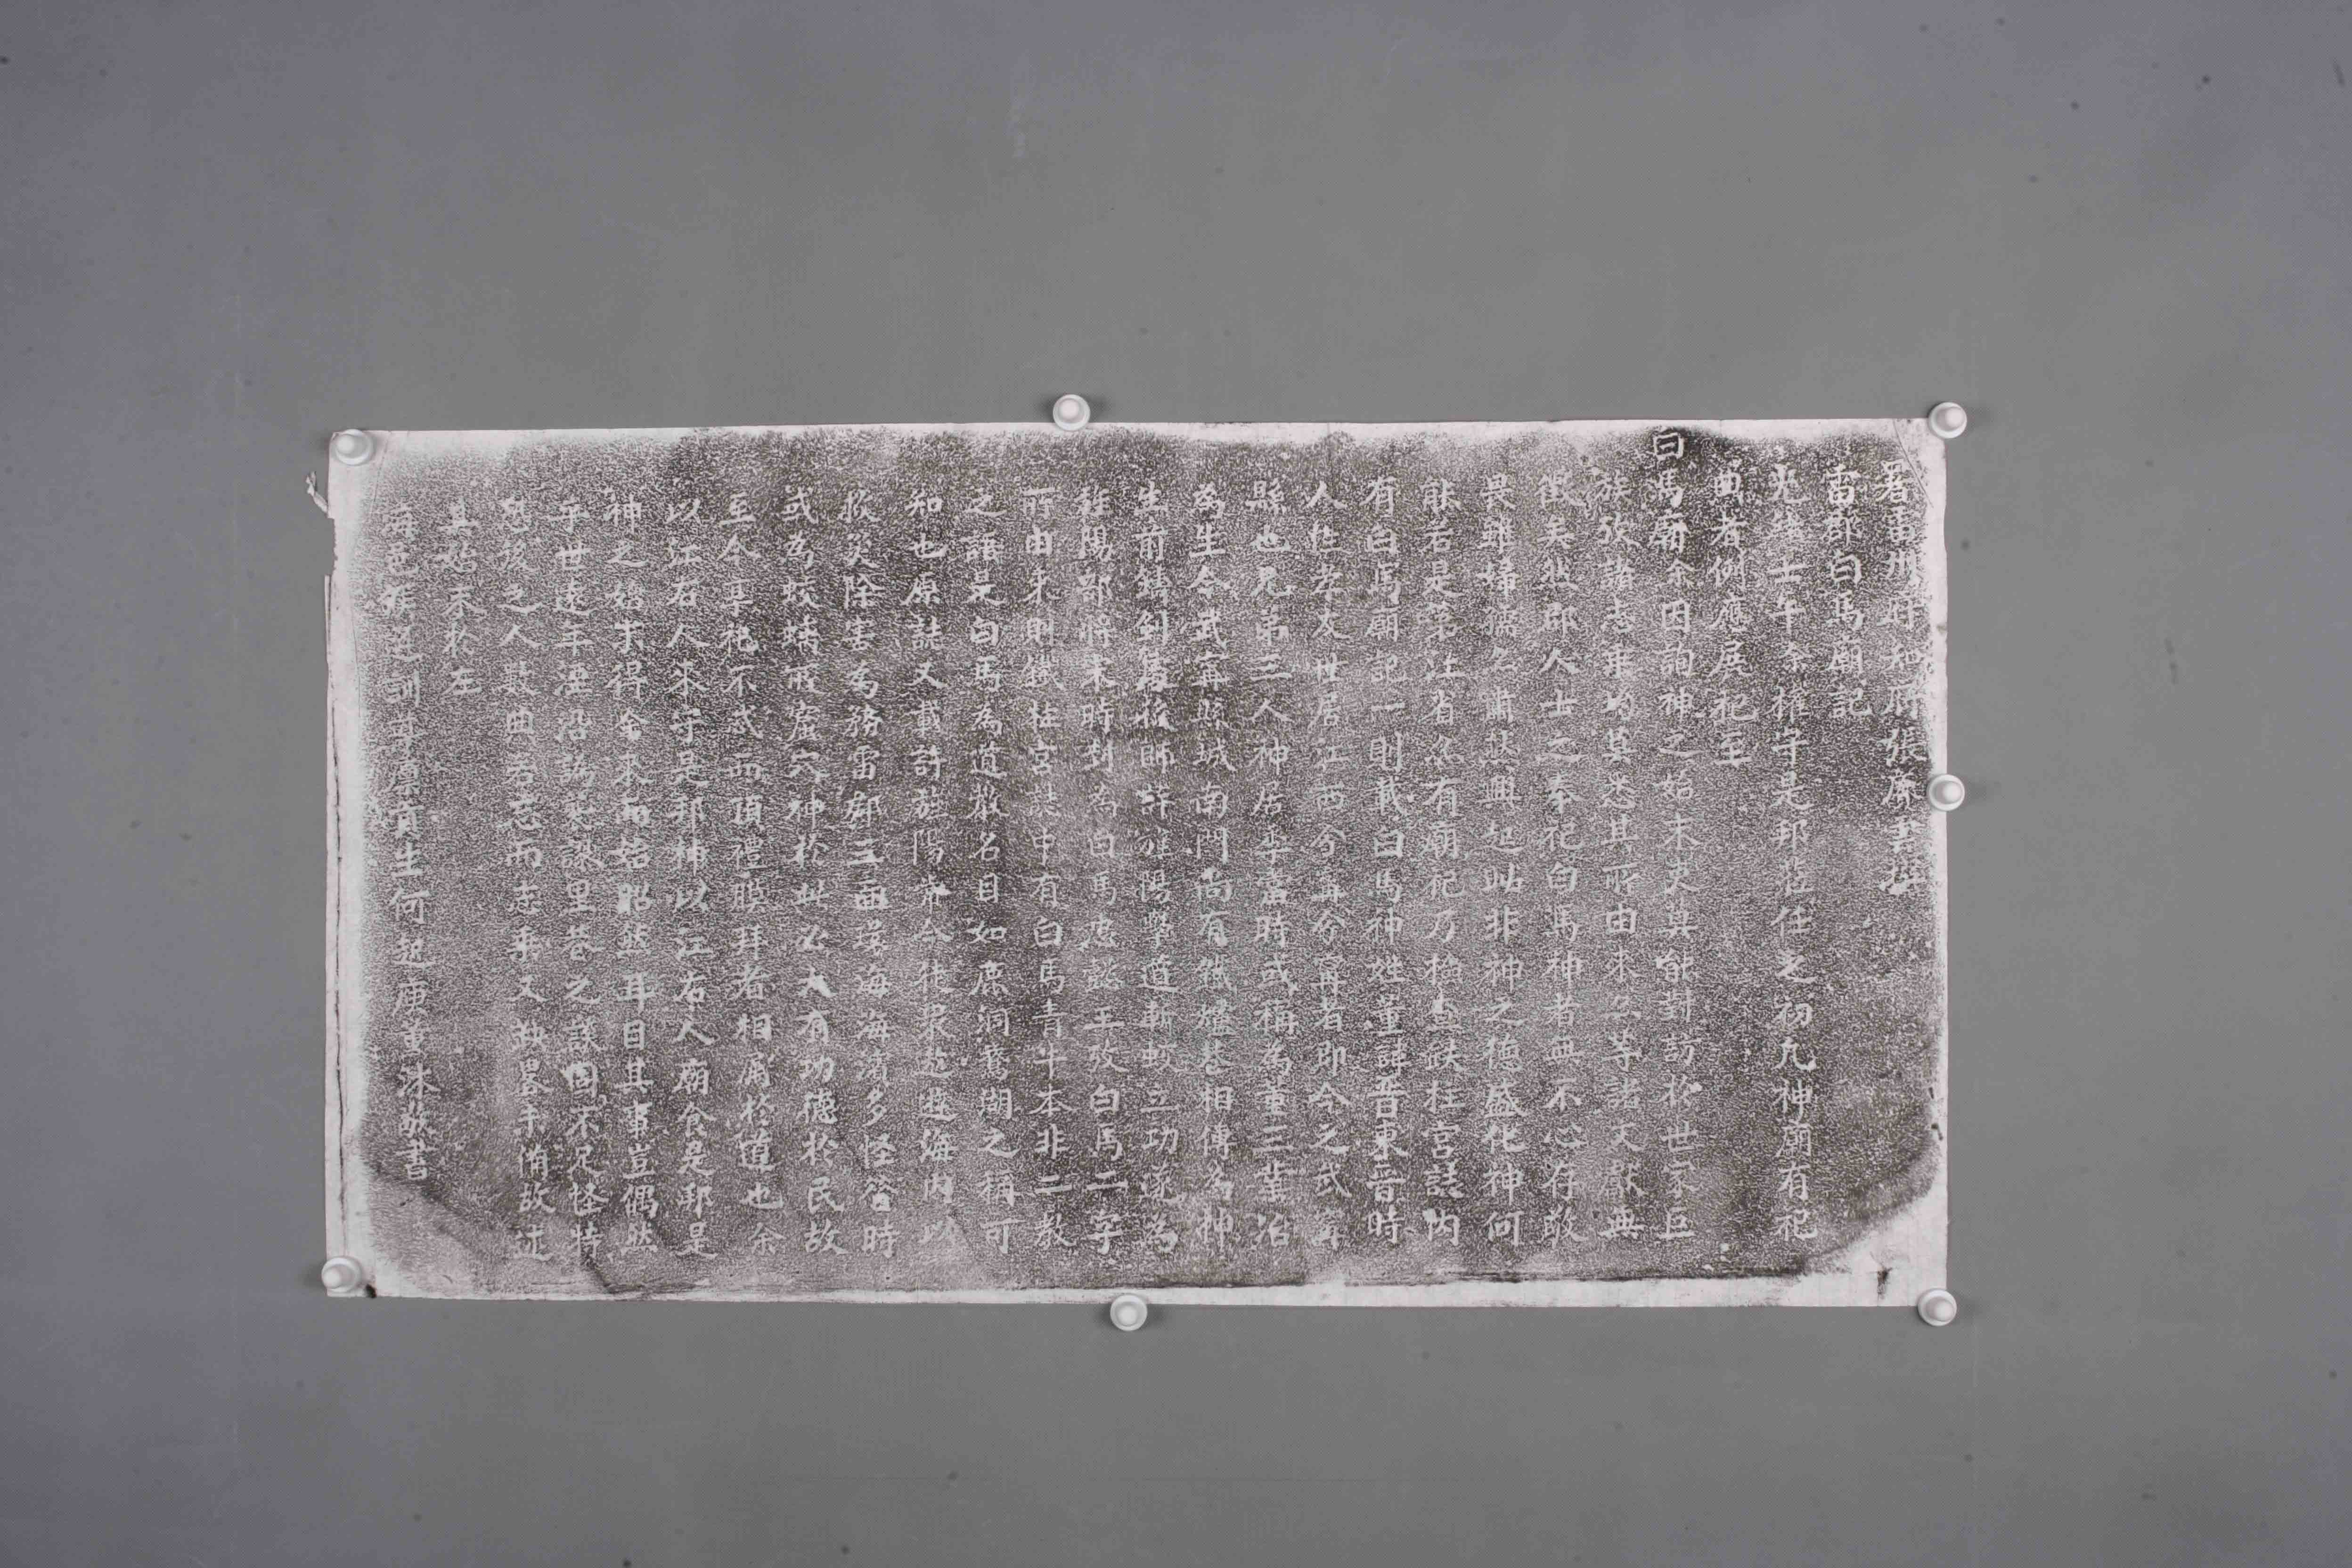 署雷州府知府張廉雲撰
雷郡白馬廟記
光緒壬午余權守是邦蒞任之初凡神廟有祀
典者例應展祀至
白馬廟余因詢神之始末史莫能對訪於世家巨
族張諸志乘均莫悉其所由來二等諸文獻無
徵矣然郡人士之奉祀白馬神者無不心存敬
畏雖婦孺亦肅然興起此非神之德盛化神何
能若是第江省亦有廟祀乃檢查鐵柱宮誌內
有白馬廟記一則載白馬神姓董諱晋東晉時
人性孝友世居江西分寧分寧者即今之武寧
縣也兄弟三人神居季當時或稱為董三輩治
為生今武寧縣城南門尚有鐵爐巷相傳為神
生前鑄劍舊後師許旌陽學道斬蛟立功遂為
旌陽部將宋時封為白馬忠懿王攷白馬二字
所由來則鐵柱宮誌中有白馬青牛本非二教
之語是白馬為道教名目如鹿洞鵞湖之稱可
知也原誌又載許旌陽常令徒衆遊邀海內以
救災除害為務雷郡三面濱海海濱多怪當時
或為蛟螭所虐
神於此必大有功德於民故
至今享祀不忒而頂禮膜拜者相屬於道也余
以江右人來守是邦神以江右人廟食是邦是
神之始末得余來而始昭然耳目其事豈偶然
乎世遠年湮沿訛襲謬里巷之談固不足怪特
恐後之人數典若忘而志乘又缺畧不備故述
其始末於左
海邑候選訓導廩貢生何超庚董沐敬書